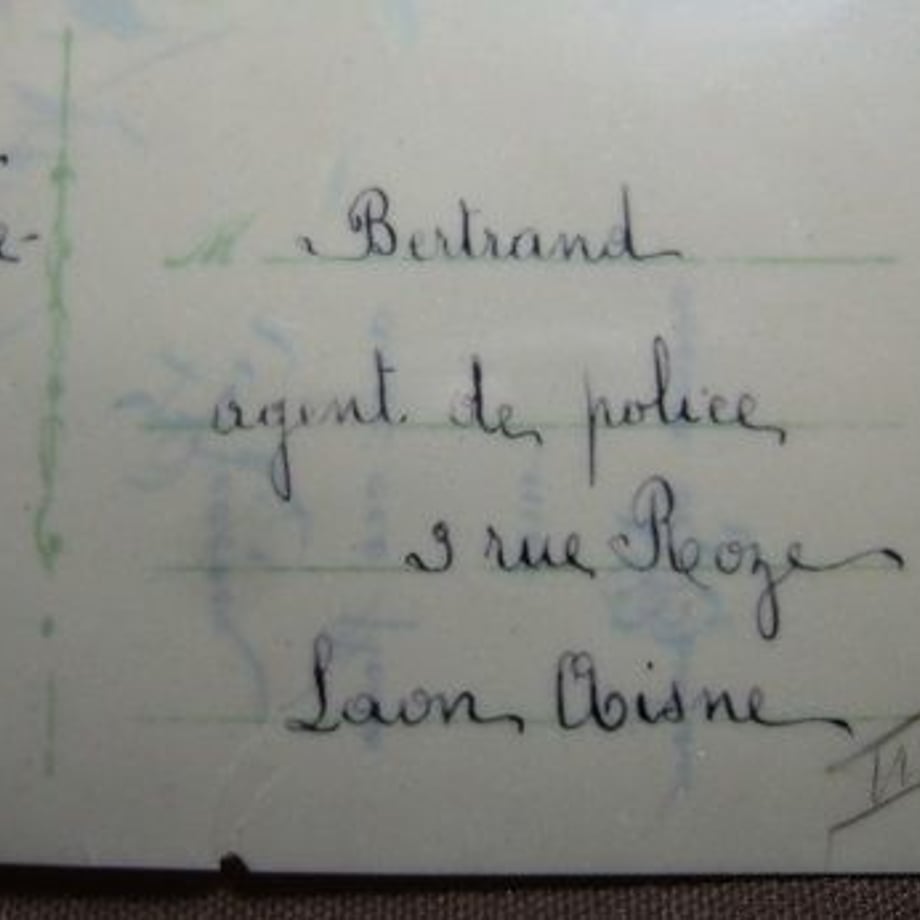 M Bertrand
agent de police
3 rue Roze
Laon Aisne